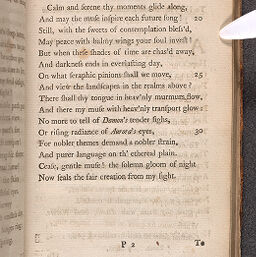 Calm and serene thy moments glide along,
And may the muse inspire each future song! 20
Still, with the sweets of contentation bless'd,
May peace with balmy wings your soul invest!
But when these shades of time are chas'd away,
And darkness ends in everlasting day,
On what seraphic pinions shall we move, 25
And view the landscapes in the realms above?
There shall thy tongue in heav'nly murmurs flow,
And there my muse with heav'nly transport glow:
No more to tell of Damon's tender sighs,
Or rising radiance of Aurora's eyes, 30
For nobler themes demand a nobler strain,
And purer language on th' ethereal plain.
Cease, gentle muse! the solemn gloom of night
Now seals the fair creation from my sight.
P 2 To